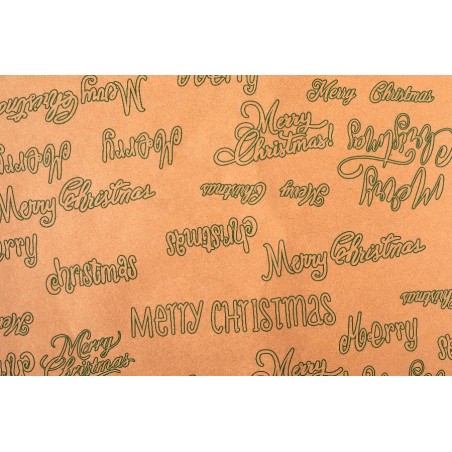 Merry
Merry Christmas
Merry Christmas
Merry
Christmas!
Merry Christmas
Merry
Merry
Christmas
Merry
Merry Christmas
Christmas
Merry
Christmas
Merry Christmas
Merry
christmas
Christmas
MERRY CHRISTMAS
Merry
Merry
Merry
Christmas